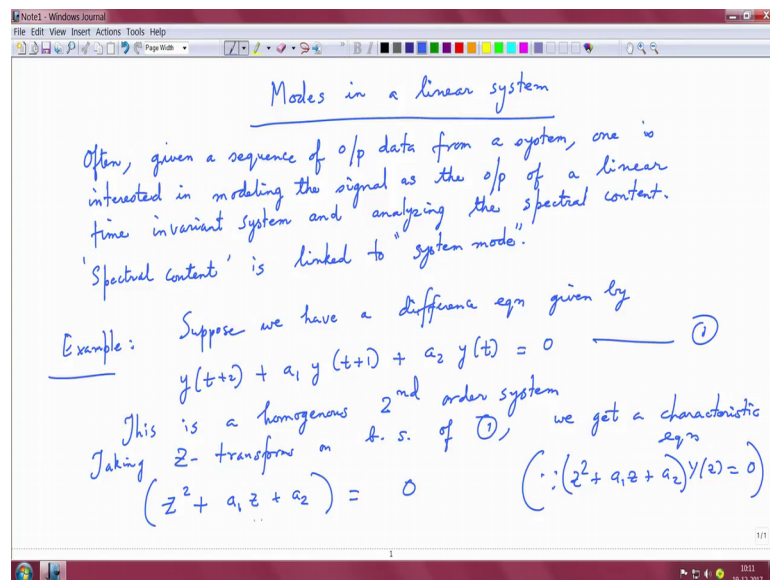 Note1 - Windows Journal
File Edit View Insert Actions Tools Help
Page Width
Modes in a linear system
Often, given a sequence of o/p data from a system, one is
interested in modeling the signal as the o/p of a linear
time invariant system and analyzing the spectral content.
'Spectral content' is linked to "system mode".
Example: Suppose we have a difference eqn given by
y(t+2) + a₁ y(t+1) + a₂ y(t) = 0 ——— ①
This is a homogenous 2nd order system
Taking Z- transforms on b.s. of ①, we get a characteristic
eqn
(z² + a₁z + a₂) = 0 (∵(z² + a₁z + a₂)Y(z) = 0)
1/1
1
10:11
19-12-2017